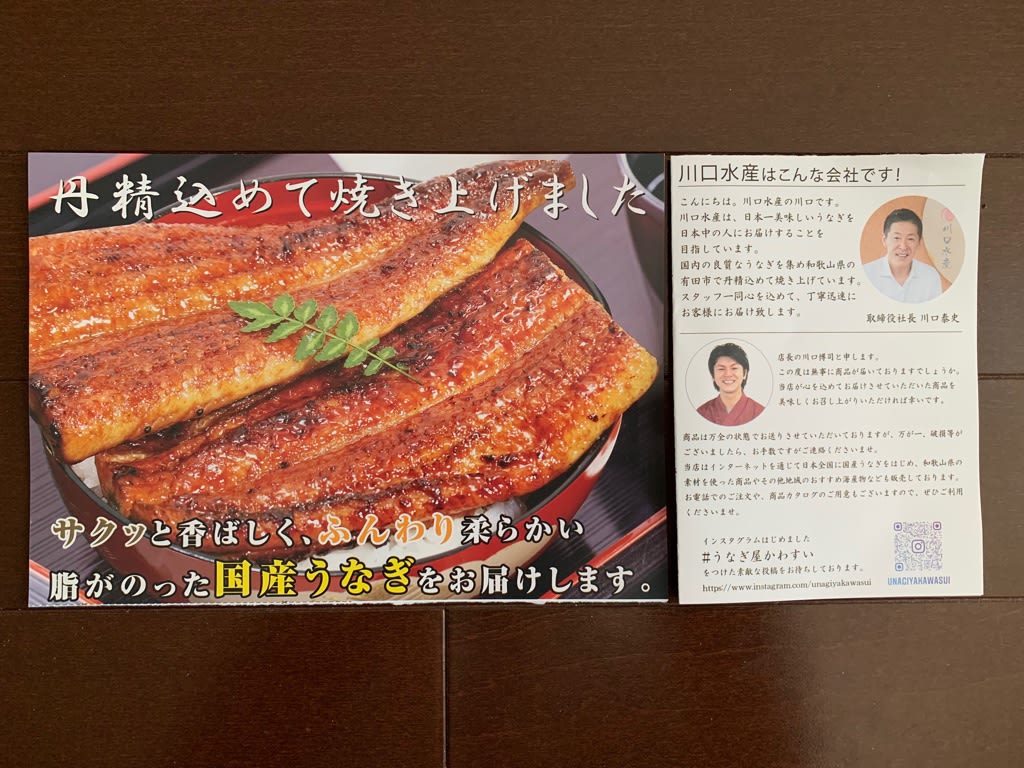 丹精込めて焼き上げました
サクッと香ばしく、ふんわり柔らかい
脂がのった国産うなぎをお届けします。
川口水産はこんな会社です!
こんにちは。川口水産の川口です。
川口水産は、日本一美味しいうなぎを
日本中の人にお届けすることを
目指しています。
国内の良質なうなぎを集め和歌山県の
有田市で丹精込めて焼き上げています。
スタッフ一同心を込めて、丁寧迅速に
お客様にお届け致します。
川口水産
取締役社長 川口泰史
店長の川口博司と申します。
この度は無事に商品が届いておりますでしょうか。
当店が心を込めてお届けさせていただいた商品を
美味しくお召し上がりいただければ幸いです。
商品は万全の状態でお送りさせていただいておりますが、万が一、破損等が
ございましたら、お手数ですがご連絡くださいませ。
当店はインターネットを通じて日本全国に国産うなぎをはじめ、和歌山県の
素材を使った商品やその他地域のおすすめ海産物なども販売しております。
お電話でのご注文や、商品カタログのご用意もございますので、ぜひご利用
くださいませ。
インスタグラムはじめました
#うなぎ屋かわすい
をつけた素敵な投稿をお待ちしております。
https://www.instagram.com/unagiyakawasui
UNAGIYAKAWASUI